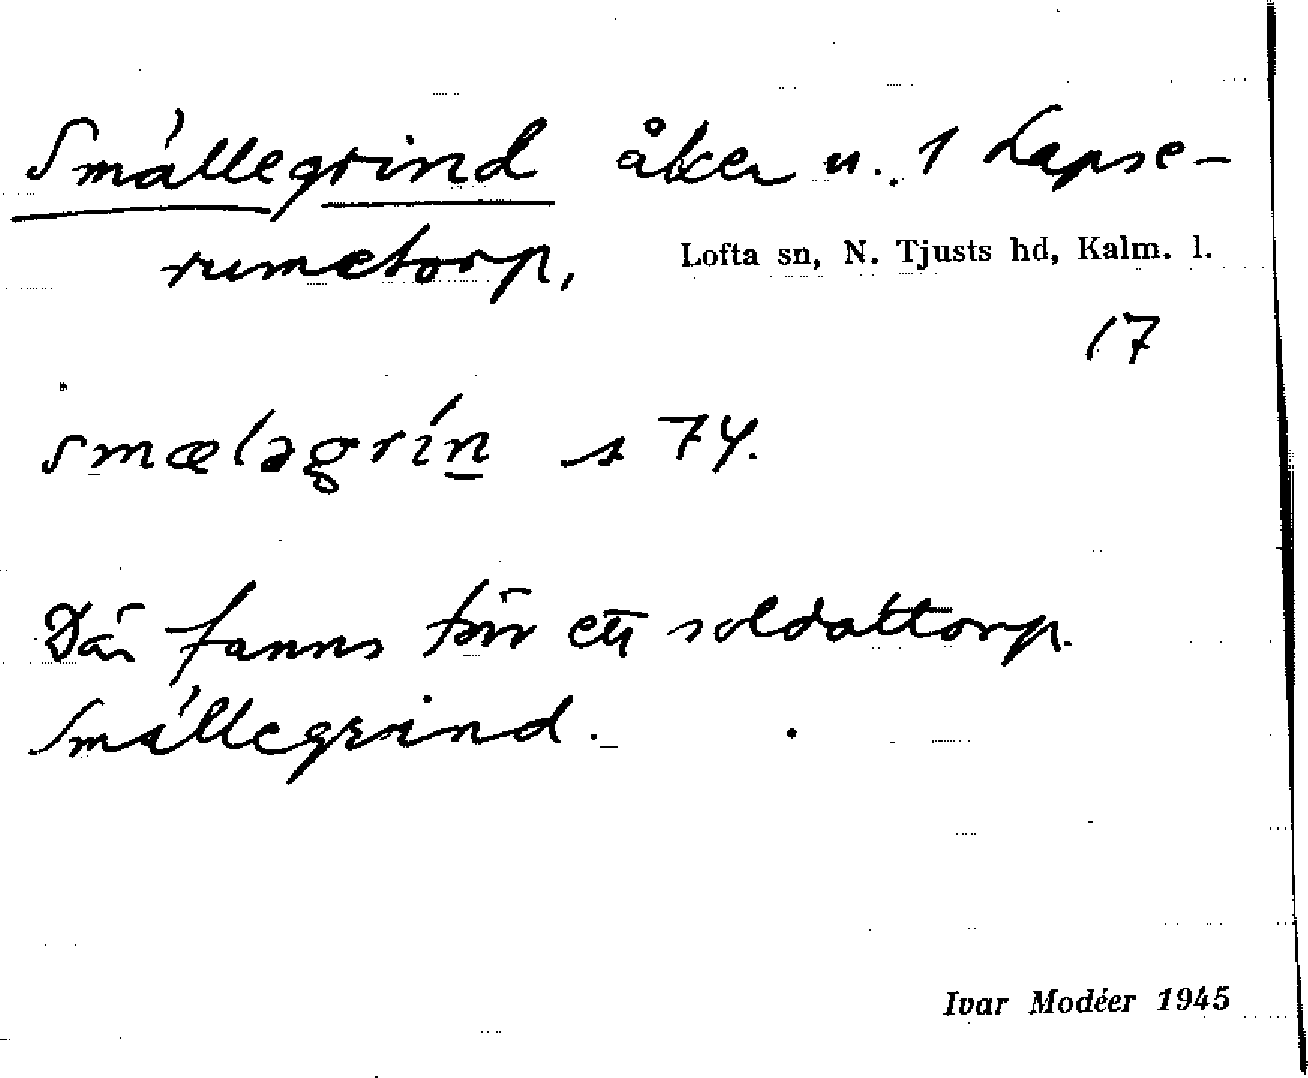 Smällegrind åker u. 1 Lapse-
rumstorp,
Lofta sn, N. Tjusts hd, Kalm. l.
17
smæləgrín s 74.
Där fanns förr ett soldattorp.
Smällegrind.
Ivar Modéer 1945